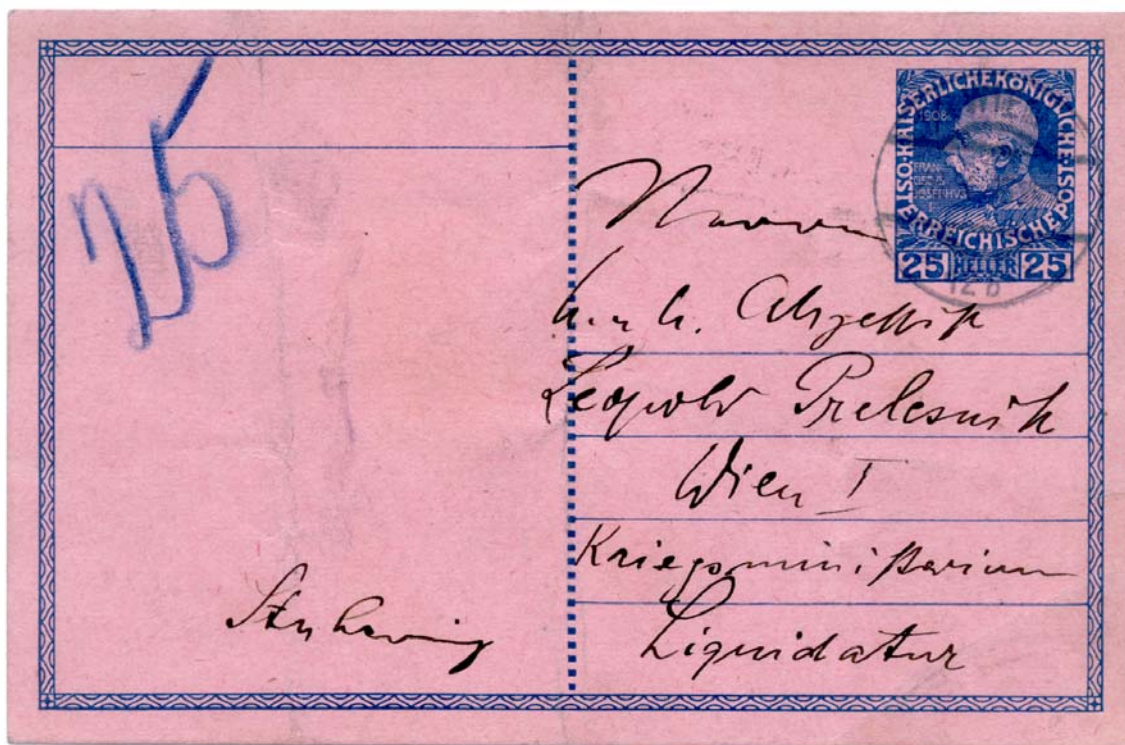 25
KAISERLICHE KÖNIGLICHE ÖSTERREICHISCHE POST
1908
FRANC
IOSEPHVS
25 HELLER 25
12 b
Herrn
k. u. k.
Leopold Prelesnik
Wien I
Kriegsministerium
Liquidatur